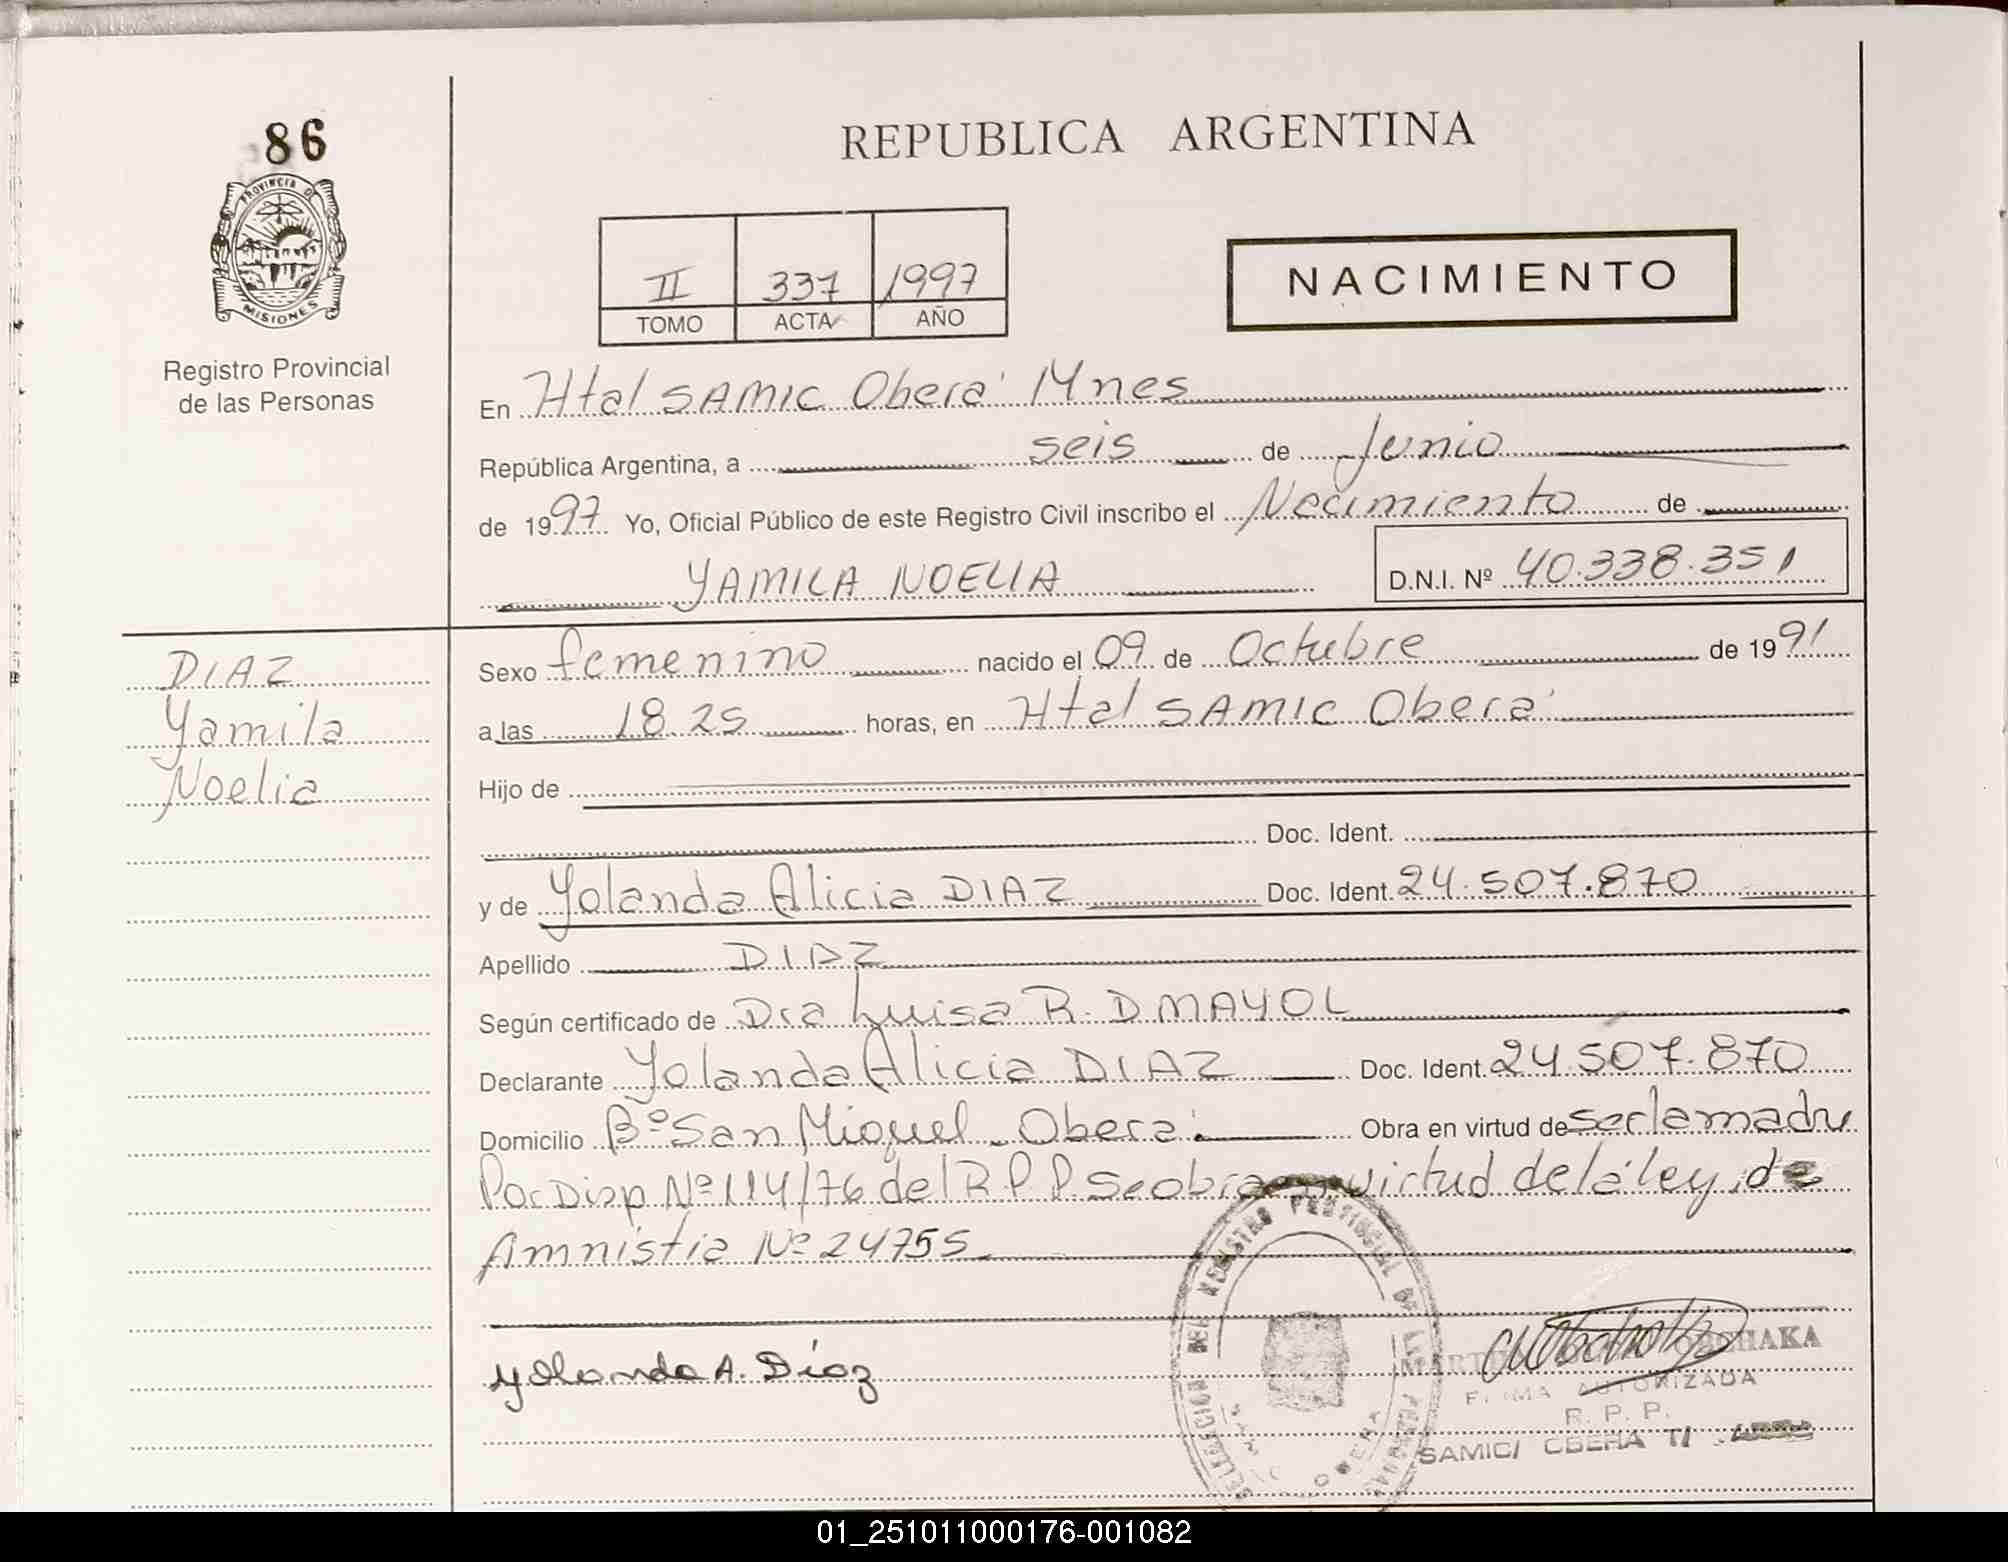 86
PROVINCIA DE
MISIONES
Registro Provincial
de las Personas
REPUBLICA ARGENTINA
II 337 1997
TOMO ACTA AÑO
NACIMIENTO
En Htal SAMIC Oberá Mnes
República Argentina, a seis de Junio
de 1997 Yo, Oficial Público de este Registro Civil inscribo el Nacimiento de
YAMILA NOELIA D.N.I. Nº 40.338.351
DIAZ
Yamila
Noelia
Sexo femenino nacido el 09 de Octubre de 1991
a las 18.25 horas, en Htal SAMIC Oberá
Hijo de
Doc. Ident.
y de Yolanda Alicia DIAZ Doc. Ident. 24.507.870
Apellido DIAZ
Según certificado de Dra Luisa R. D MAYOL
Declarante Yolanda Alicia DIAZ Doc. Ident. 24.507.870
Domicilio Bº San Miguel - Oberá. Obra en virtud de ser la madre
Por Disp Nº 114/76 del R P P. Se obra en virtud de la ley de
Amnistia Nº 24755
Yolanda A. Díaz
DELEGACION DEL REGISTRO PROVINCIAL DE LAS PERSONAS
SAMIC OBERA
FIRMA AUTORIZADA
R. P. P.
SAMIC/ OBERA
01_251011000176-001082